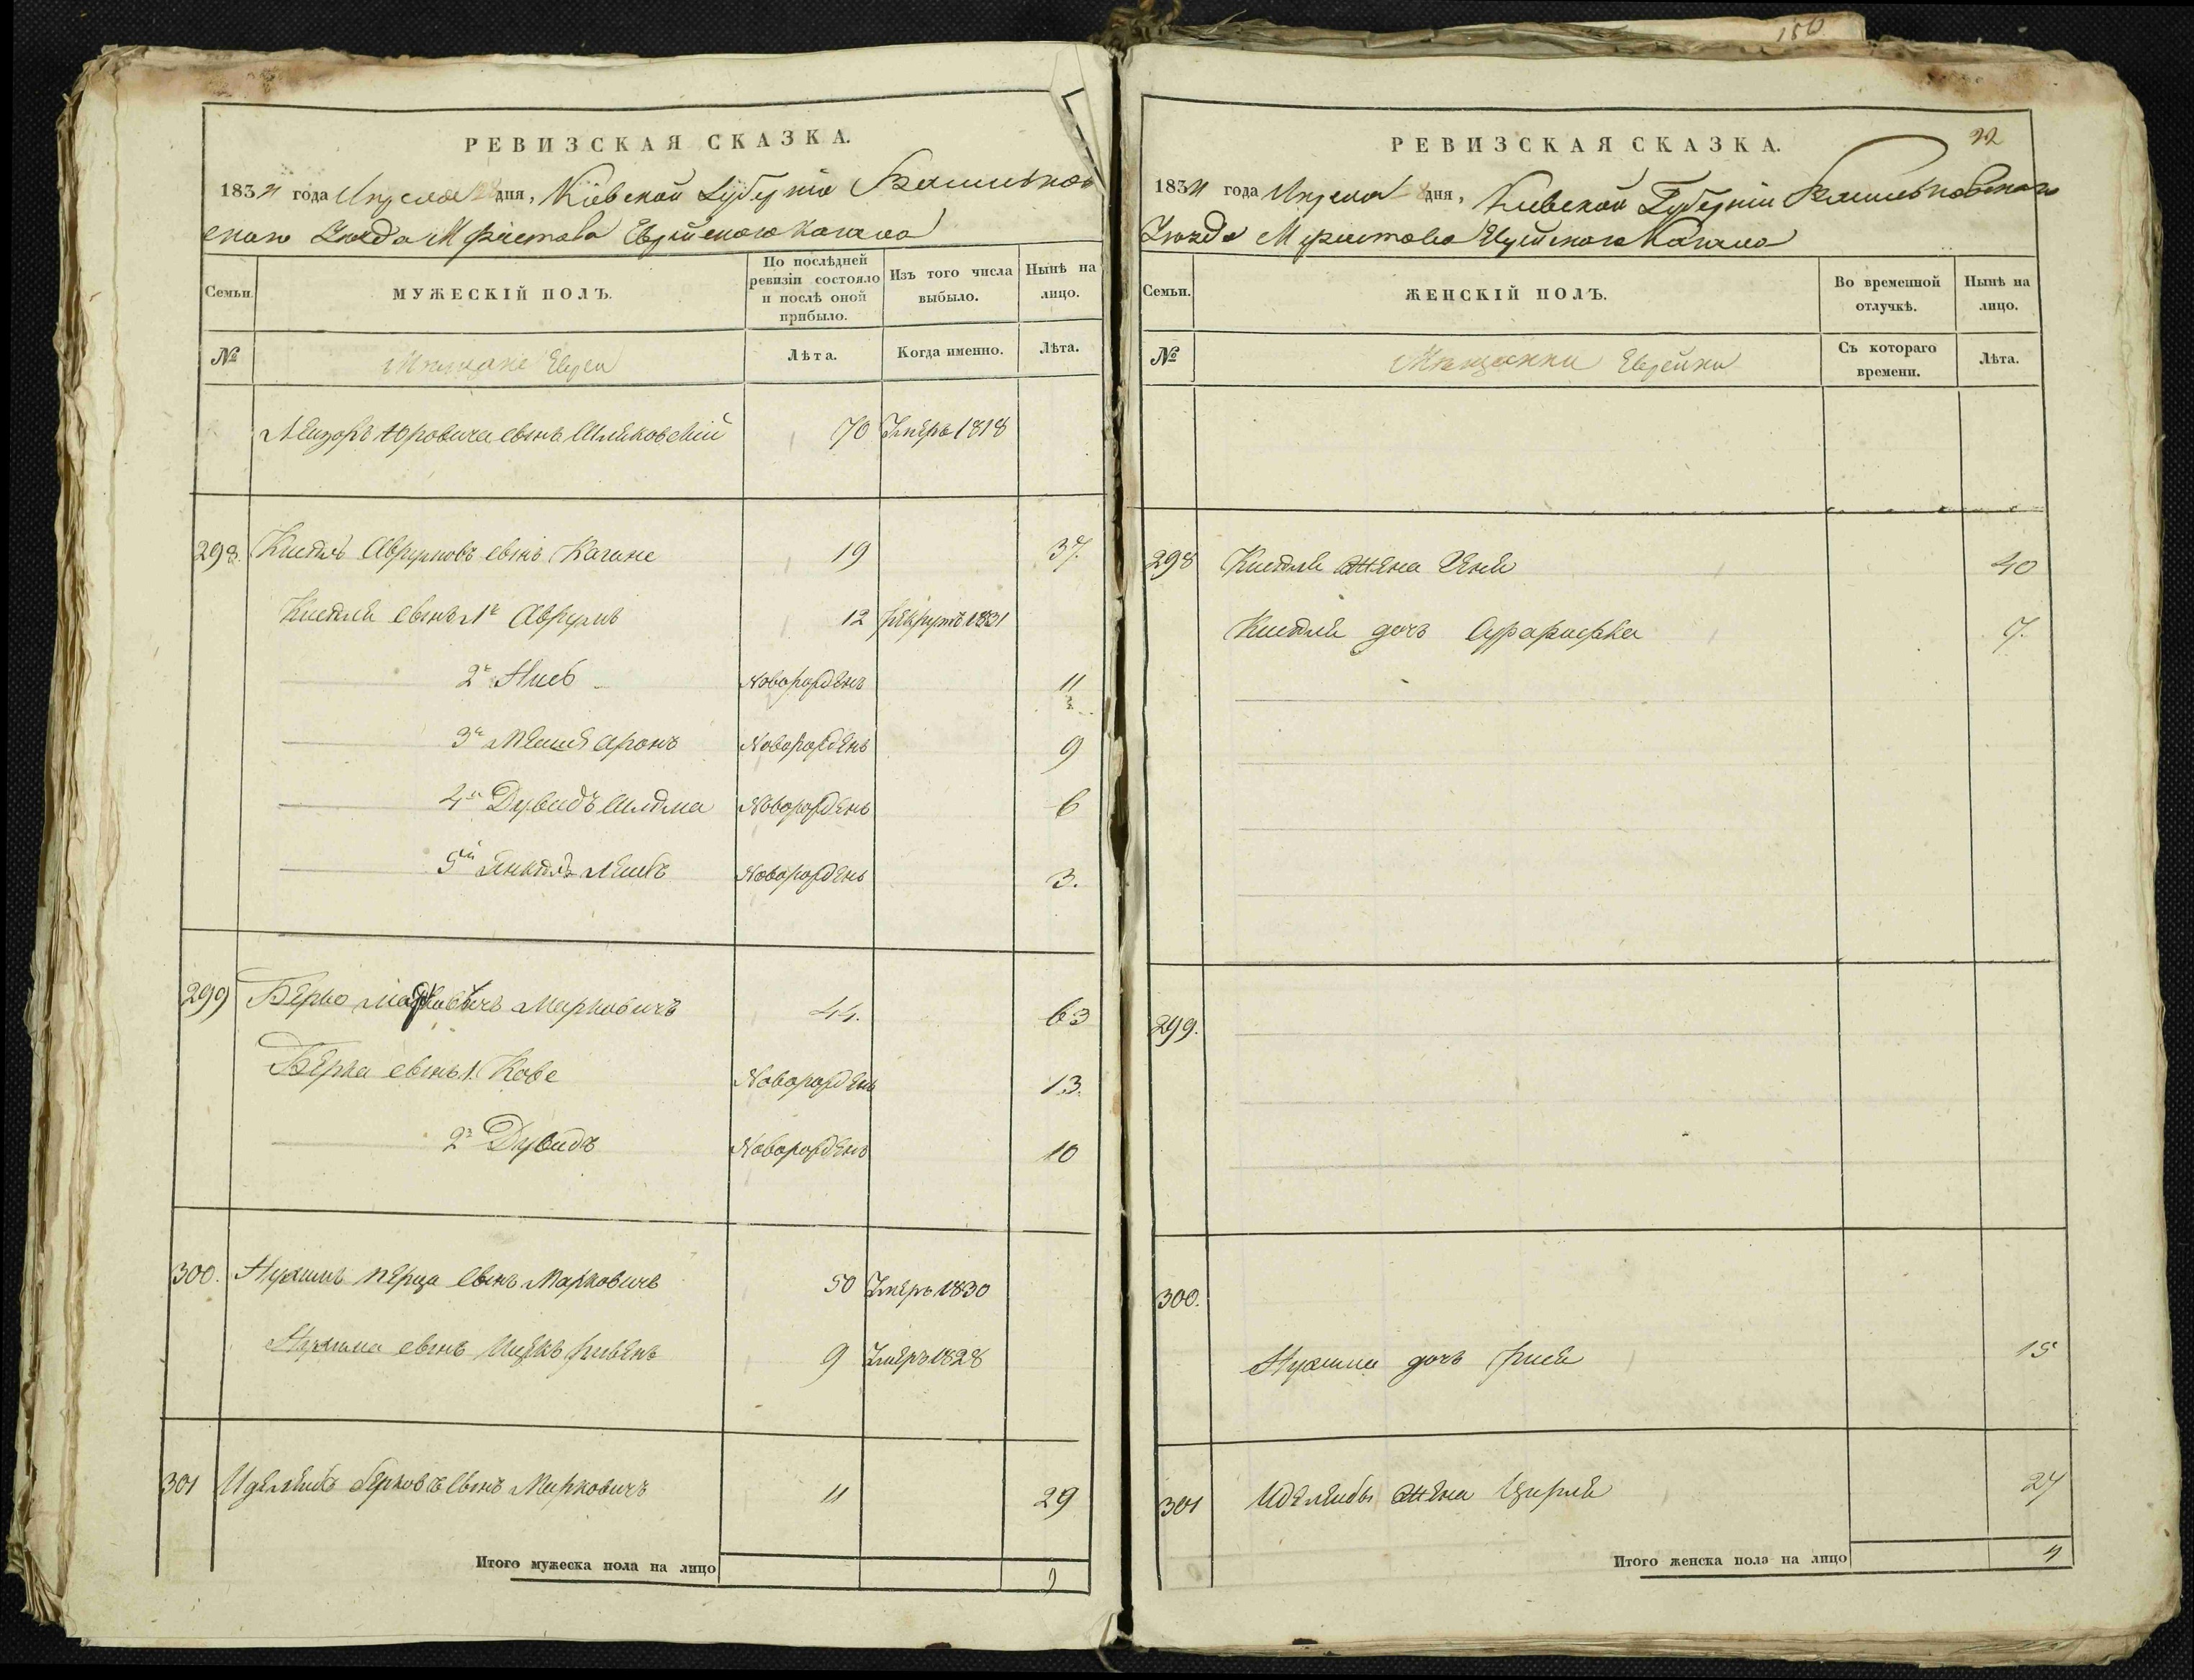 150
РЕВИЗСКАЯ СКАЗКА.
1834 года Апреля дня, Кіевской Губерніи Васильков
скаго Уезда М Фастова Еврейскаго Кагала
Семьи.
МУЖЕСКІЙ ПОЛЪ.
По послѣдней ревизіи состояло и послѣ оной прибыло.
Изъ того числа выбыло.
Нынѣ на лицо.
№
Мещане Евреи
Лѣта.
Когда именно.
Лѣта.
Лейзоръ Юровича сынъ 70 Умеръ 1818
298. Кисель Аврумовъ сынъ Кагане 19 37.
Киселя сынъ 1й Аврумъ 12 рекрутъ 1831
2й Новорожденъ 11
3й Мошко Аронъ Новорожденъ 9
4й Дувидъ Шлема Новорожденъ 6
5й Янкель Лейбъ Новорожденъ 3.
299 Берко Марковичъ 44. 63
Берка сынъ 1. Новорожденъ 13.
2й Дувидъ Новорожденъ 10
300. Нухимъ Перца сынъ Марковичъ 50 Умеръ 1830
Нухима сынъ Ицекъ Рувенъ 9 Умеръ 1828
301 Идельлейбъ Берковъ сынъ Марковичъ 11 29
Итого мужеска пола на лицо 9
22
РЕВИЗСКАЯ СКАЗКА.
1834 года Апреля дня, Киевской Губернии Васильковскаго
Уезда М Фастова Еврейскаго Кагала
Семьи.
ЖЕНСКІЙ ПОЛЪ.
Во временной отлучкѣ.
Нынѣ на лицо.
№
Мещанки Еврейки
Съ котораго времени.
Лѣта.
298 Киселя жена Геня 40
Киселя дочь 7.
299.
300.
Нухима дочь Рися 15
301 Идельлейбы жена Цирля 27
Итого женска пола на лицо 4